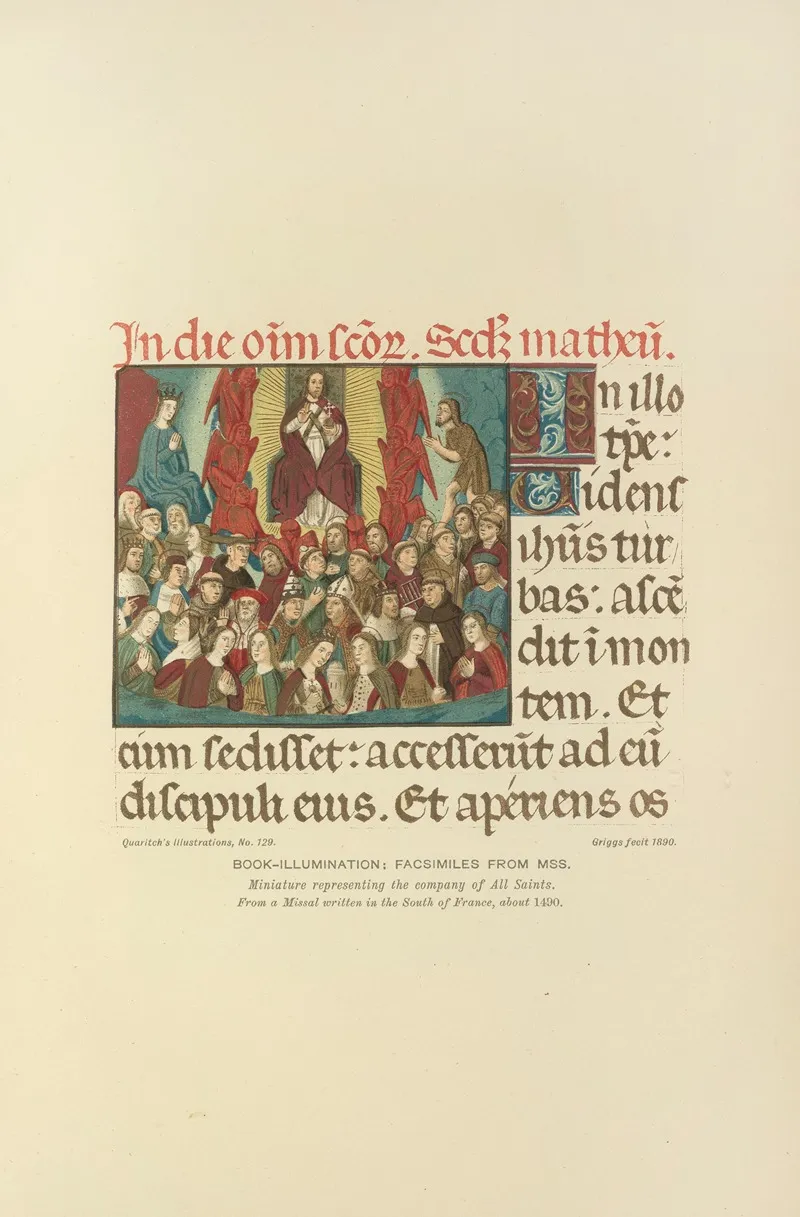 In die oīm scōꝝ. Scd̄ȝ matheū.
In illo
tp̄e:
Uidens
ihūs tur
bas: ascē
dit ī mon
tem. Et
cūm sedisset: accesserūt ad eū
discipuli eius. Et apériens os
Quaritch's Illustrations, No. 129.
Griggs fecit 1890.
BOOK-ILLUMINATION: FACSIMILES FROM MSS.
Miniature representing the company of All Saints.
From a Missal written in the South of France, about 1490.